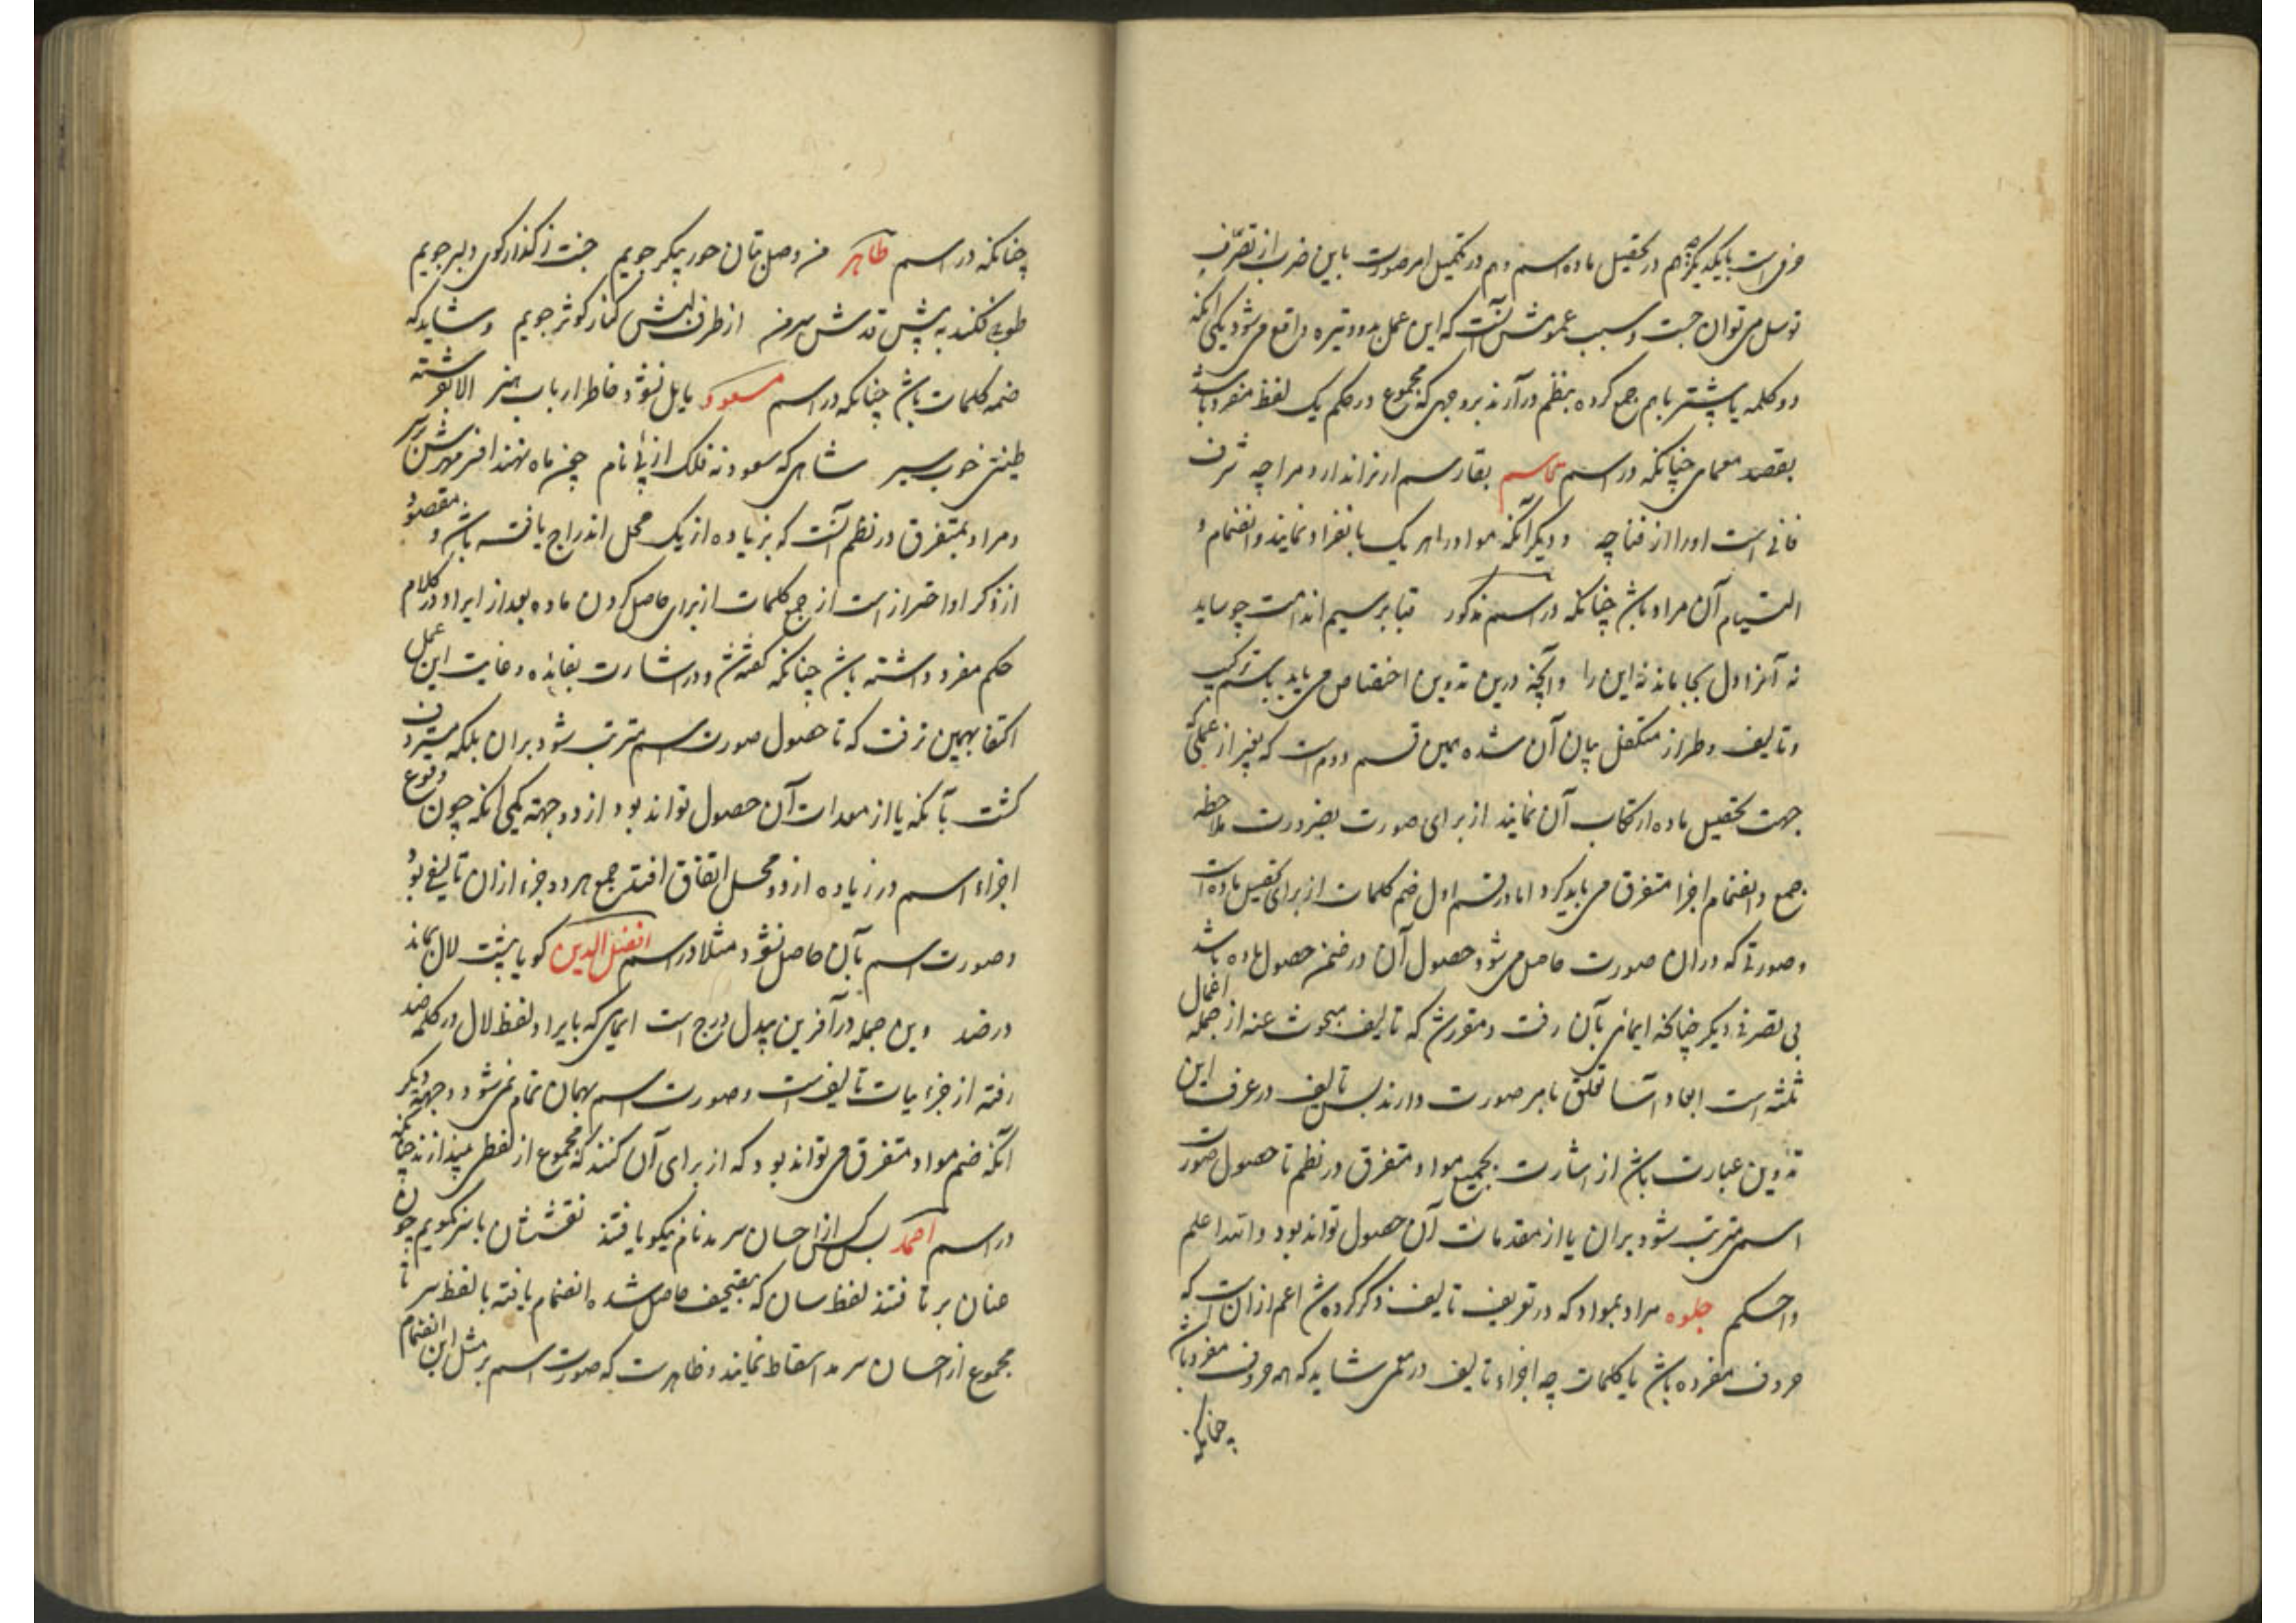 است بایکدیگر هم در تحصیل ماده اسم و هم در تکمیل امر صورت باین ضرب از تصرف
توسل می توان جست و سبب عمومش آنست که این عمل بدو وتیره واقع می شود یکی آنکه
دو کلمه یا بیشتر باهم جمع کرده بنظم درآرند بر وجهی که مجموع در حکم یک لفظ مفرد باشد
بقصد معمای چنانکه در اسم قاسم بقا رسم ار نه اندارد مرا چه شرف
فانی است او را از فنا چه و دیگر آنکه مواد را هر یک بانفراد نمایند و انضمام و
التیام آن مراد باشد چنانکه در اسم مذکور قبا بر سیم اندامت چو ساید
نه آنرا دل بجا ماند نه این را و آنچه درین تدوین اختصاص می یابد باسم ترکیب
و تالیف و طراز متکفل بیان آن شده همین قسم دومست که بغیر از عملی که
جهت تحصیل ماده ارتکاب آن نمایند از برای صورت بضرورت ملاحظه
جمع و انضمام اجزا متفرق می باید کرد اما در قسم اول ضم کلمات از برای تحصیل ماده است
و صورتی که دران صورت حاصل می شود حصول آن در ضمن حصول ماده باشد
بی تصرفی دیگر چنانکه ایمایی بآن رفت و مقررست که تالیف مبحوث عنه از جمله اعمال
ثلثه است ابعاد آنها تعلق بامر صورت دارند پس تالیف در عرف این
تدوین عبارت باشد از اشارت بجمیع مواد متفرق در نظم تا حصول صورت
اسم مترتب شود بران یا از مقدمات آن حصول تواند بود والله اعلم
واحکم جلوه مراد بمواد که در تعریف تالیف ذکر کرده شد اعم ازان است که
حروف مفرده باشد یا کلمات چه اجزاء تالیف در معمی شاید که همه حروف مفرد باشد
چنانکه
چنانکه در اسم طاهر من وصل بتان حور پیکر جویم جنت ز گذار کوی دلبر جویم
طوبی فکند به پیش قدش سر من از طرف لبش کنار کوثر جویم و شاید که
همه کلمات باشد چنانکه در اسم مسعود مایل نشود خاطر ارباب هنر الا بفرشته
طینتی خوب سیر شاهی که سعود نه فلک از پی نام چون ماه نهند افسر مهرش بر سر
و مراد بمتفرق در نظم آنست که بزیاده از یک محل اندراج یافته باشد و مقصود
از ذکر او احتراز است از جمع کلمات از برای حاصل کردن ماده بعد از ایراد در کلام
حکم مفرد داشته باشد چنانکه گفته شد و در اشارت بفایده و غایت این عمل
اکتفا بهمین نرفت که تا حصول صورت اسم مترتب شود بران بلکه مردف
گشت بآنکه یا از معدات آن حصول تواند بود از دو جهة یکی آنکه چون وقوع
اجزاء اسم در زیاده از دو محل اتفاق افتد جمع هر دو جزء ازان تالیفی بود
و صورت اسم بآن حاصل نشود مثلا در اسم افضل الدین گویا بیت لال بماند
در ضد وین جمله در آفرین بیدل درج است ایمایی که بایراد لفظ لال در کلمه ضد
رفته از جزئیات تالیفست و صورت اسم بهمان تمام نمی شود و جهة دیگر
آنکه ضم مواد متفرق می تواند بود که از برای آن کنند که مجموع از لفظی بیندازند چنانکه
در اسم احمد بس کس از احسان سرمد نام نیکو یافتند نقششان با سر نگویم چون
عنان برتافتند لفظ سان که بتصحیف حاصل شده انضمام یافته بالفظ سر تا
مجموع از احسان سرمد اسقاط نمایند و ظاهرست که صورت اسم بر مثل این انضمام